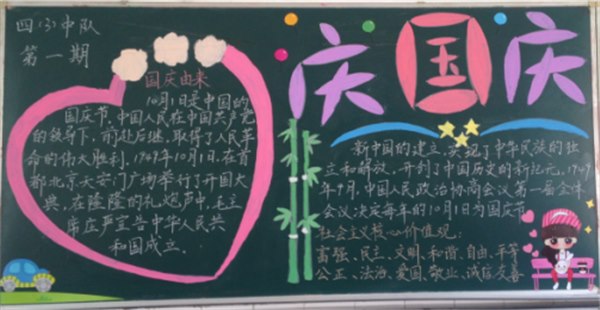 四(3)中队
第一期
国庆由来
10月1日是中国的
国庆节,中国人民在中国共产党
的领导下,前赴后继,取得了人民革
命的伟大胜利.1949年10月1日,在首
都北京天安门广场举行了开国大
典,在隆隆的礼炮声中,毛主
席庄严宣告中华人民共
和国成立。
庆国庆
新中国的建立,实现了中华民族的独
立和解放,开创了中国历史的新纪元。1949
年9月,中国人民政治协商会议第一届全体
会议决定每年的10月1日为国庆节
社会主义核心价值观:
富强、民主、文明、和谐、自由、平等
公正、法治、爱国、敬业、诚信、友善